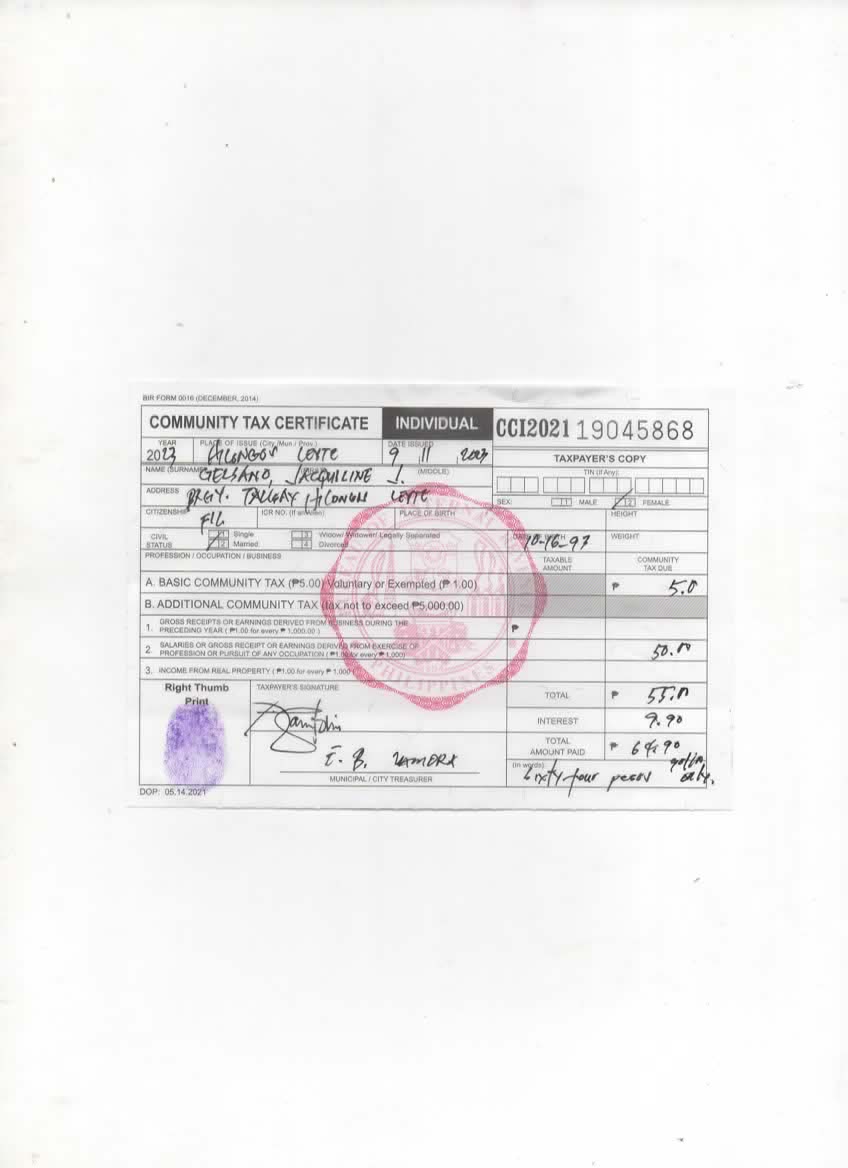 BIR FORM 0016 (DECEMBER, 2014)
COMMUNITY TAX CERTIFICATE INDIVIDUAL CCI2021 19045868
YEAR PLACE OF ISSUE (City /Mun./ Prov.) DATE ISSUED
2023 HILONGOS LEYTE 9 11 2023
TAXPAYER'S COPY
NAME (SURNAME) (MIDDLE) TIN (If Any):
JACQUILINE J.
ADDRESS BRGY. HILONGOS LEYTE
SEX: 1 MALE 2 FEMALE
CITIZENSHIP ICR NO. (If an Alien) PLACE OF BIRTH HEIGHT
FIL
CIVIL STATUS 1 Single 3 Widow/ Widower/ Legally Separated
2 Married 4 Divorced
WEIGHT
PROFESSION / OCCUPATION / BUSINESS
TAXABLE AMOUNT COMMUNITY TAX DUE
A. BASIC COMMUNITY TAX (₱5.00) Voluntary or Exempted (₱ 1.00) ₱ 5.0
B. ADDITIONAL COMMUNITY TAX (tax not to exceed ₱5,000.00)
1. GROSS RECEIPTS OR EARNINGS DERIVED FROM BUSINESS DURING THE PRECEDING YEAR ( ₱1.00 for every ₱ 1,000.00 ) ₱
2. SALARIES OR GROSS RECEIPT OR EARNINGS DERIVED FROM EXERCISE OF PROFESSION OR PURSUIT OF ANY OCCUPATION ( ₱1.00 for every ₱ 1,000) 50.00
3. INCOME FROM REAL PROPERTY ( ₱1.00 for every ₱ 1,000 )
Right Thumb Print
TAXPAYER'S SIGNATURE
TOTAL ₱ 55.00
INTEREST 9.90
TOTAL AMOUNT PAID ₱ 64.90
E. B. ZAMORA
MUNICIPAL / CITY TREASURER
(in words) Sixty four pesos 90/100 only.
DOP: 05.14.2021
PHILIPPINES